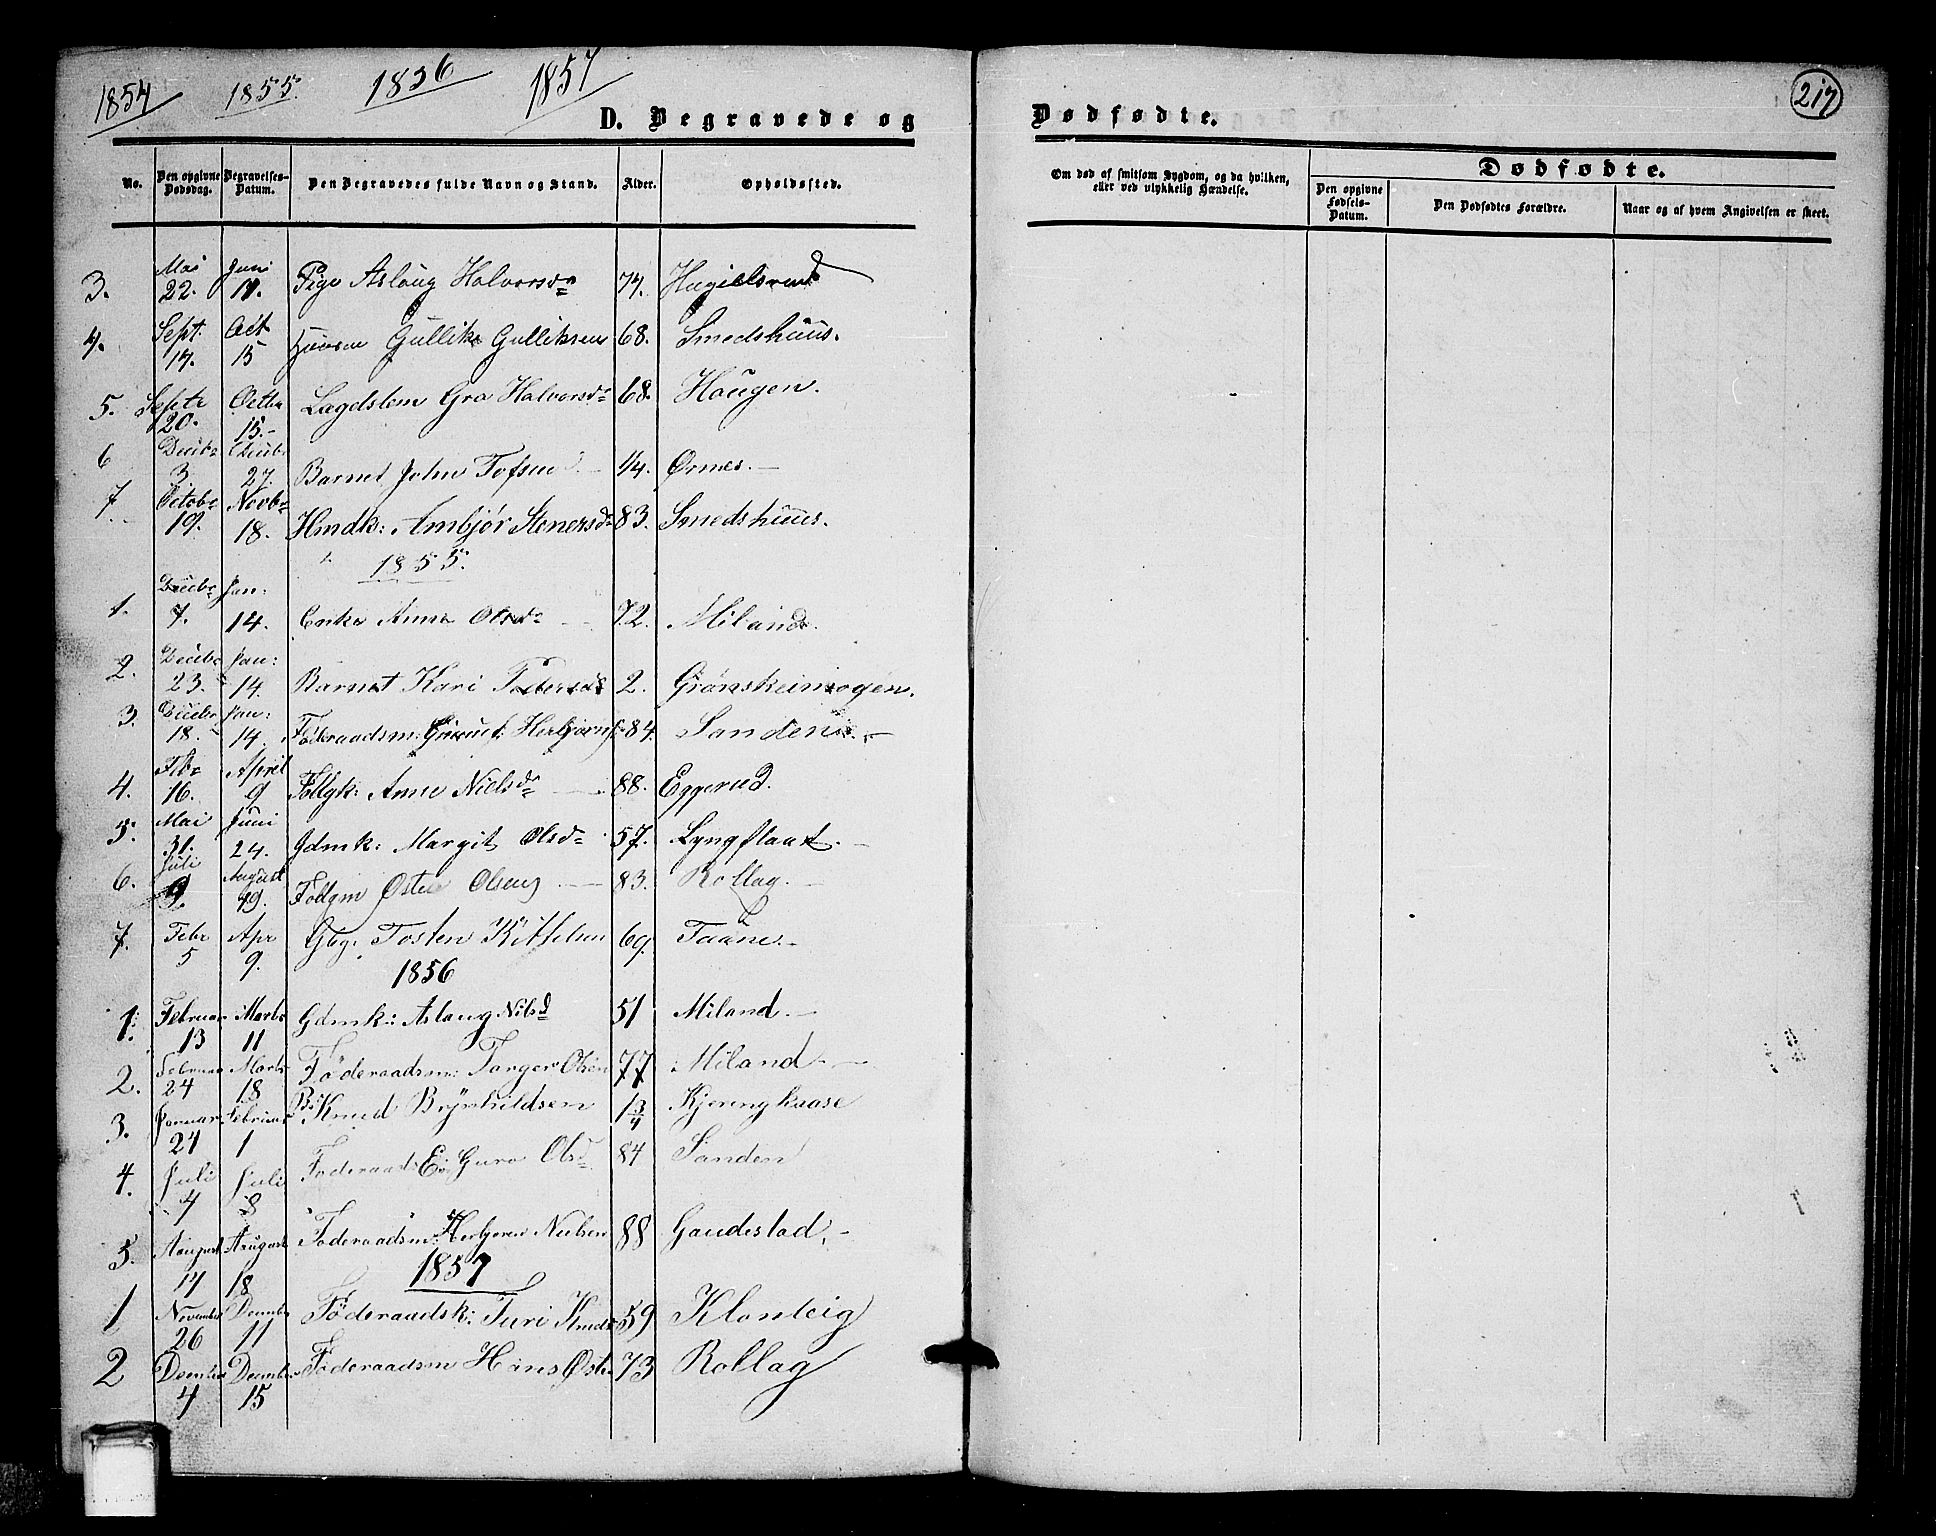 1854 1855. 1856 1857
D. Begravede og
Dødfødte.
217
No. Den opgivne Dødsdag. Begravelses-Datum. Den Begravedes fulde Navn og Stand. Alder. Opholdssted.
Om død af smitsom Sygdom, og da hvilken, eller ved ulykkelig Hændelse.
Dødfødte.
Den opgivne Fødsels-Datum. Den Dødfødtes Forældre. Naar og af hvem Angivelsen er skeet.
3. Mai 22. Juni 11. Pige Aslaug Halvorsdr 74.
4. Sept. 17. Oct 15 Gullik Gulliksen 68. Smedshuus.
5. Septr 20. Octbr 15.- Lægdslem Gro Halvorsdr 68. Haugen.
6 Decbr 3. Decbr 27. Barnet John Tofsen 1/4. Ørnes.-
7. Octobr 19. Novbr 18. Hmdk: Ambjør Stenersdr 83. Smedshuus.
1855.
1. Decbr 7. Jan: 14. Enke Anne Olsdr 72. Miland.
2. Decbr 23. Jan: 14. Barnet Kari 2. Grønskeimogen.
3. Decbr 18. Jan: 14. Føderaadsm: 84. Sanden.-
4. Fbr 16. April 9 Follgk: Anne Nielsdr 88. Eggerud.
5. Mai 31. Juni 24. Gdmk: Margit Olsdr 57. Lyngflaat.-
6. Juli 9. August 19. Follgm Østen Olsen 83. Rollag.-
7. Febr 5 Apr 9. Gbg: Tosten Kittelsen 69. Taane.-
1856
1. Februar 13 Marts 11 Gdmk: Aslaug Nilsd 51 Miland.-
2. Februar 24 Marts 18 Føderaadsm: Torger Olsen 77 Miland.-
3. Januar 24 Februar 1 B: Knud Brynhildsen 1 3/4 Kjerringkaase
4. Juli 4 Juli 8 Føderaads E: Guro Olsdr 84 Sanden
5. August 14 August 18 Føderaadsm: Herbjørn Nielsen 88 Gaudestad.-
1857
1 November 26 December 11 Føderaadsk: Turi Knudsd 59 Klonteig
2 December 4 December 15 Føderaadsm Hans Østens 73 Rollag